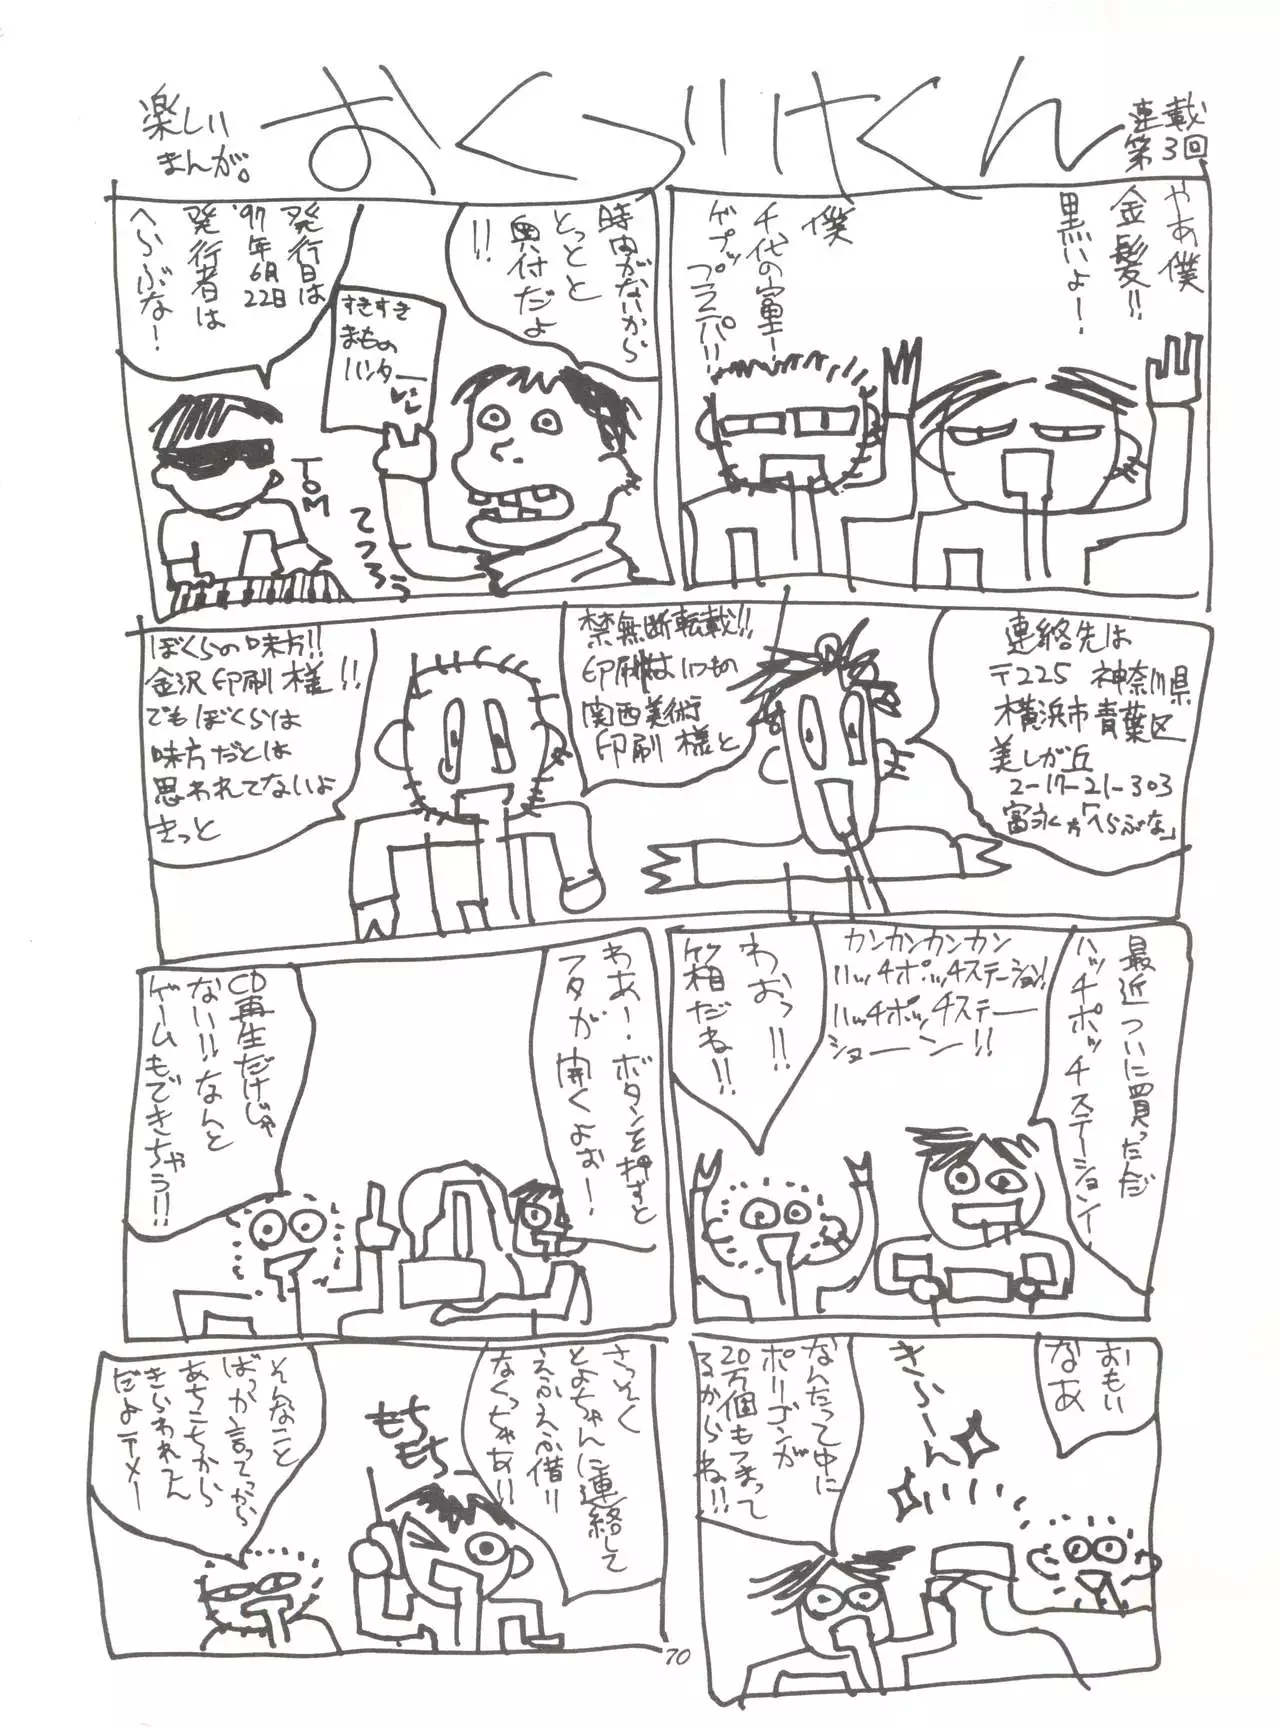 楽しい
まんが。
おくづけくん
連載
第3回
やあ僕
金髪!!
黒いよ!
僕
千代の富士!
ゲプップラパパ!!
時間がないから
とっとと
奥付だよ
!!
すきすき
まもの
ハンター
発行日は
'97年
6月
22日
発行者は
へらぶな!
TOM
てつろう
連絡先は
〒225 神奈川県
横浜市青葉区
美しが丘
2-17-21-303
富永方「へらぶな」
禁無断転載!!
印刷はいつもの
関西美術
印刷様と
ぼくらの味方!!
金沢印刷様!!
でもぼくらは
味方だとは
思われてないよ
きっと
最近ついに買っただ
ハッチポッチステーションイー
カンカンカンカン
ハッチポッチステーション!
ハッチポッチステー
ショーン!!
わおっ!!
ケ箱だね!!
わあーボタンを押すと
フタが開くよぉ!
CD再生だけじゃ
ない!!なんと
ゲームもできちゃう!!
おもい
なあ
きらーん
なんたって中に
ポリゴンが
20万個もつまって
るからね!!
さっそく
とよちゃんに連絡して
えふえふ借り
なくっちゃあ!!
もち
もち
そんなこと
ばっか言ってっから
あちこちから
きらわれてん
だよテメー
70